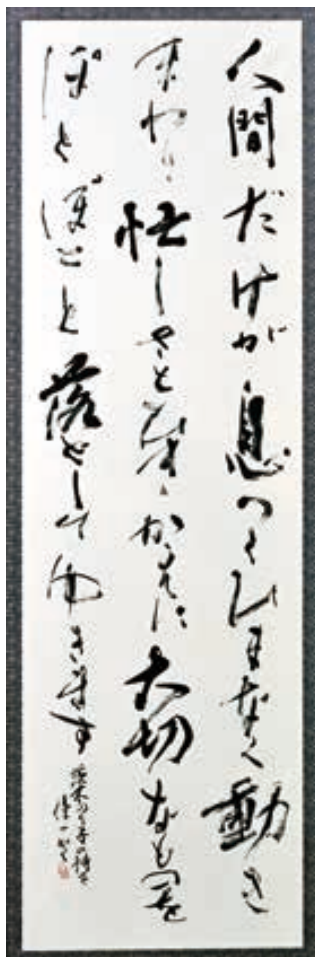 人間だけが息つくひまなく動き
まわり忙しさとひきかえに大切なものを
ぽとぽとと落としてゆきます
茨木のり子の詩を